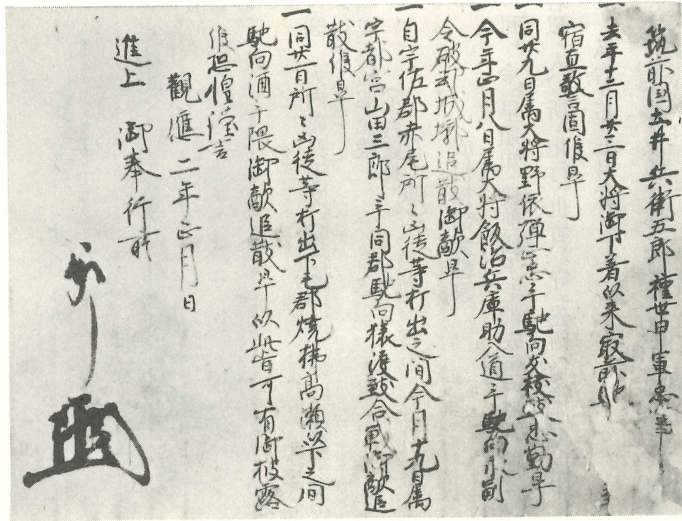 筑前国土井兵衛五郎種世申軍忠事
一去年十二月廿三日大将御下着以来最前馳
宿直警固候早
一同廿九日属大将野依弾正忠手馳向 致忠勤早
一今年正月八日属大将飯沼兵庫助入道手馳向
令破却城墎追散御敵早
一自宇佐郡赤尾所々凶徒等打出之間今月十九日属
宇都宮山田三郎手同郡馳向猿渡致合戦御敵追
散候早
一同廿一日所々凶徒等打出下毛郡焼拂高瀬以下之間
馳向酒手隈御敵追散早以此旨可有御披露
候恐惶謹言
觀應二年正月日
進上 御奉行所